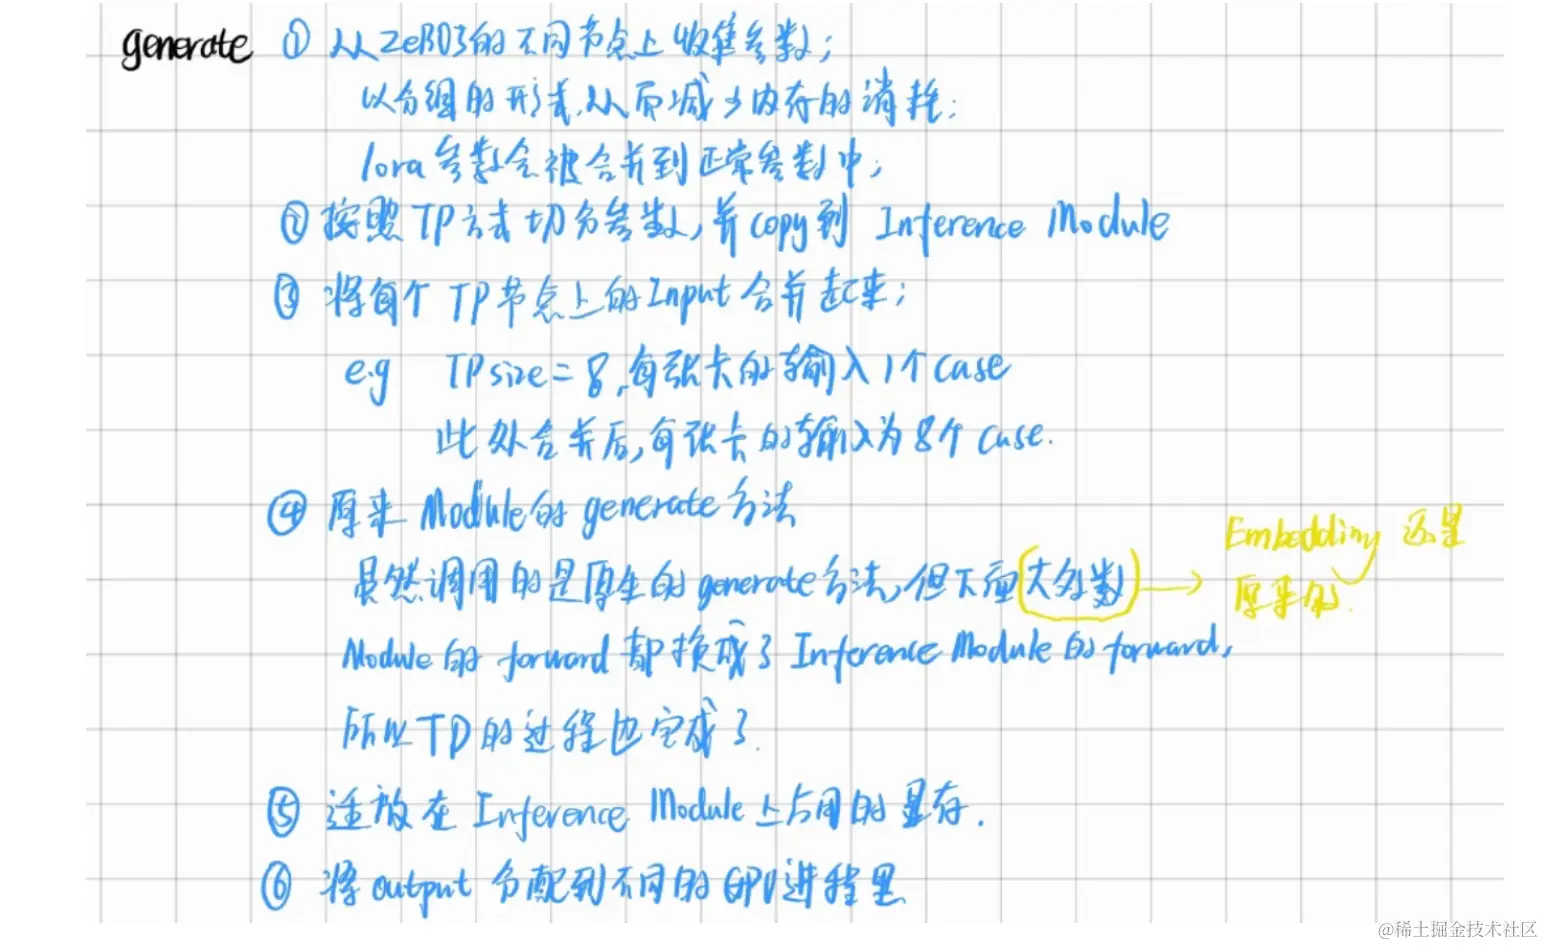 generate ① 从ZeRO3的不同节点上收集参数;
以分组的形式,从而减少内存的消耗;
lora参数会被合并到正常参数中;
② 按照TP方式切分参数,并copy到 Inference Module
③ 将每个TP节点上的Input合并起来;
e.g TPsize=8,每张卡的输入1个case
此处合并后,每张卡的输入为8个case.
④ 原来Module的generate方法
虽然调用的是原生的generate方法,但下面大多数
Embedding 还是
原来的.
Module的forward都换成了Inference Module的forward,
所以TP的过程也完成了.
⑤ 释放在Inference Module上占用的显存.
⑥ 将output分配到不同的GPU进程里
@稀土掘金技术社区